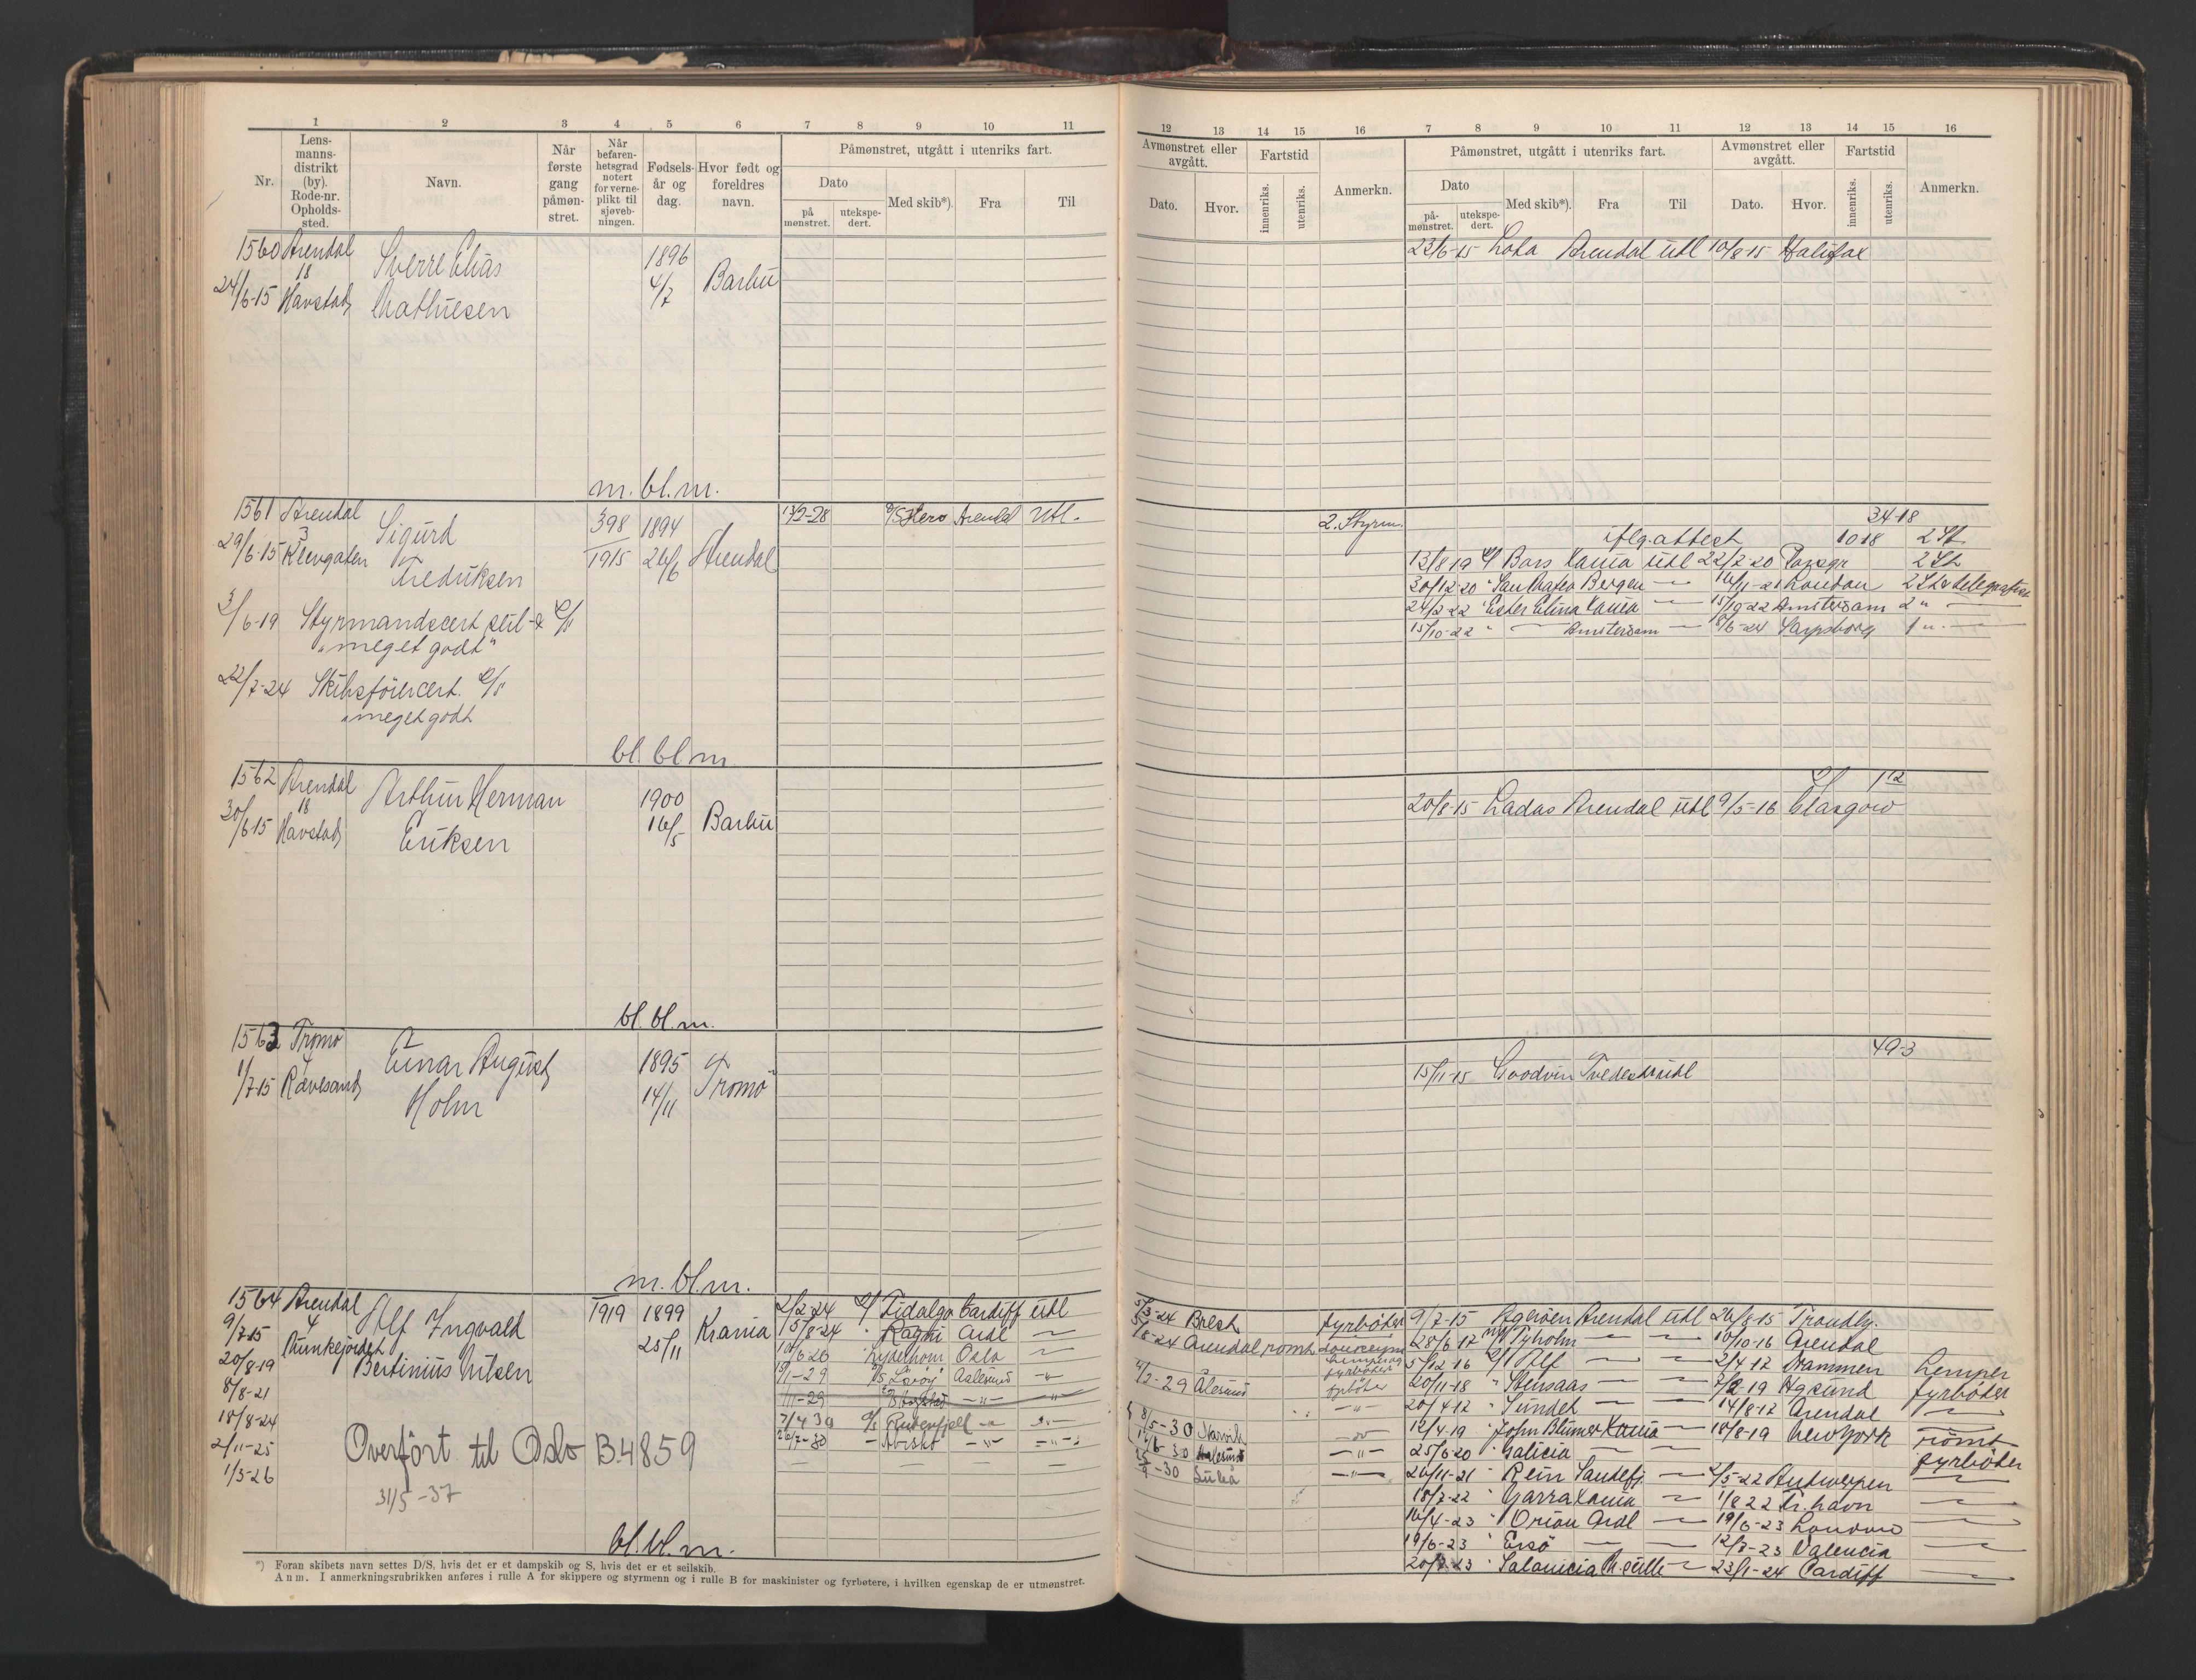 1 2 3 4 5 6 7 8 9 10 11
Nr. Lens-manns-distrikt (by). Rode-nr. Opholds-sted. Navn. Når første gang påmøn-stret. Når befaren-hetsgrad notert for verne-plikt til sjøveb-ningen. Fødsels-år og dag. Hvor født og foreldres navn. Påmønstret, utgått i utenriks fart.
Dato Med skib*). Fra Til
på mønstret. utekspe-dert.
1560 Arendal Sverre Elias 1896 Barbu
18 4/7
24/6-15 Havstad Mathiesen
m. bl. m.
1561 Arendal Sigurd 398 1894 Arendal 13/2-28 D/S Hero Arendal Utl.
3 1915 26/6
29/6-15 Klevgaten Fredriksen
3/6-19 Styrmandscert
"meget godt"
22/7-24 Skibsförercert.
"meget godt
bl. bl. m
1562 Arendal Arthur Herman 1900 Barbu
18 16/5
30/6-15 Havstad Eriksen
bl. bl. m.
1563 Tromö Einar August 1895 Tromö
4 14/11
1/7-15 Rævesand Holm
m. bl. m.
1564 Arendal Alf Ingvald 1919 1899 Krania 2/2-24 Fidalgo Cardiff utl
4 25/11
9/7-15 Munkejordet Bertinius Nilsen 15/8-24 Ragni Ardl
20/8-19 Oslo
8/8-21 Aalesund
18/8-24
2/11-25 Overfört til Oslo B.4859 Rutenfjell
1/3-26 31/5-37 Abisko
bl. bl. m.
*) Foran skibets navn settes D/S, hvis det er et dampskib og S, hvis det er et seilskib.
Anm. I anmerkningsrubrikken anføres i rulle A for skippere og styrmenn og i rulle B for maskinister og fyrbøtere, i hvilken egenskap de er utmønstret.
12 13 14 15 16 7 8 9 10 11 12 13 14 15 16
Avmønstret eller avgått. Fartstid Anmerkn. Påmønstret, utgått i utenriks fart. Avmønstret eller avgått. Fartstid Anmerkn.
Dato. Hvor. innenriks. utenriks. Dato Med skib*). Fra Til Dato. Hvor. innenriks. utenriks.
på-mønstret. utekspe-dert.
22/6-15 Lota Arendal utl 10/8-15 Halifax
2. Styrm. 34-18
Afg. attest 10 18 2 St
13/8 19 Bars Kania utl 22/2-20 Porsgr 2 St
30/12-20 San Mateo Bergen 16/11-21 London 2 St & telegrafist
24/2-22 Ester Elina Kania 15/10-22 Amsterdam 2 "
15/10-22 " Amsterdam 8/6-24 Sarpsborg 1 "
1 12
20/8-15 Ladas Arendal utl 9/5-16 Glasgow
49-3
15/11-15 Goodvin Tvedestr utl
5/3-24 Brest fyrböter 9/7-15 Agerøen Arendal utl 26/8-15 Trondhj.
8-24 Arendal römt 28/6-12 Nyholm 10/10-16 Arendal
lemper og fyrböter 5/12-16 Alf 2/4-17 Drammen Lemper
4/2-29 Ålesund fyrböter 20/11-18 Stensaas 7/2-19 Haesund fyrböter
20/4-17 Sundet 14/8-17 Arendal
8/5-30 Narvik 12/4-19 John Blumer Kania 18/8-19 New York römt
17/6-30 Aalesund 25/6-20 Galicia fyrböter
-30 Luleå 26/11-21 Rein Sandefj. 2/5-22 Antwerpen
18/7-22 Garra Kania 1/8 22 Fr. havn
16/4-23 Orion Ardl 19/6-23 London
19/6-23 Ersö 12/7-23 Valencia
20/7-23 Salonicia M.seille 23/1-24 Cardiff